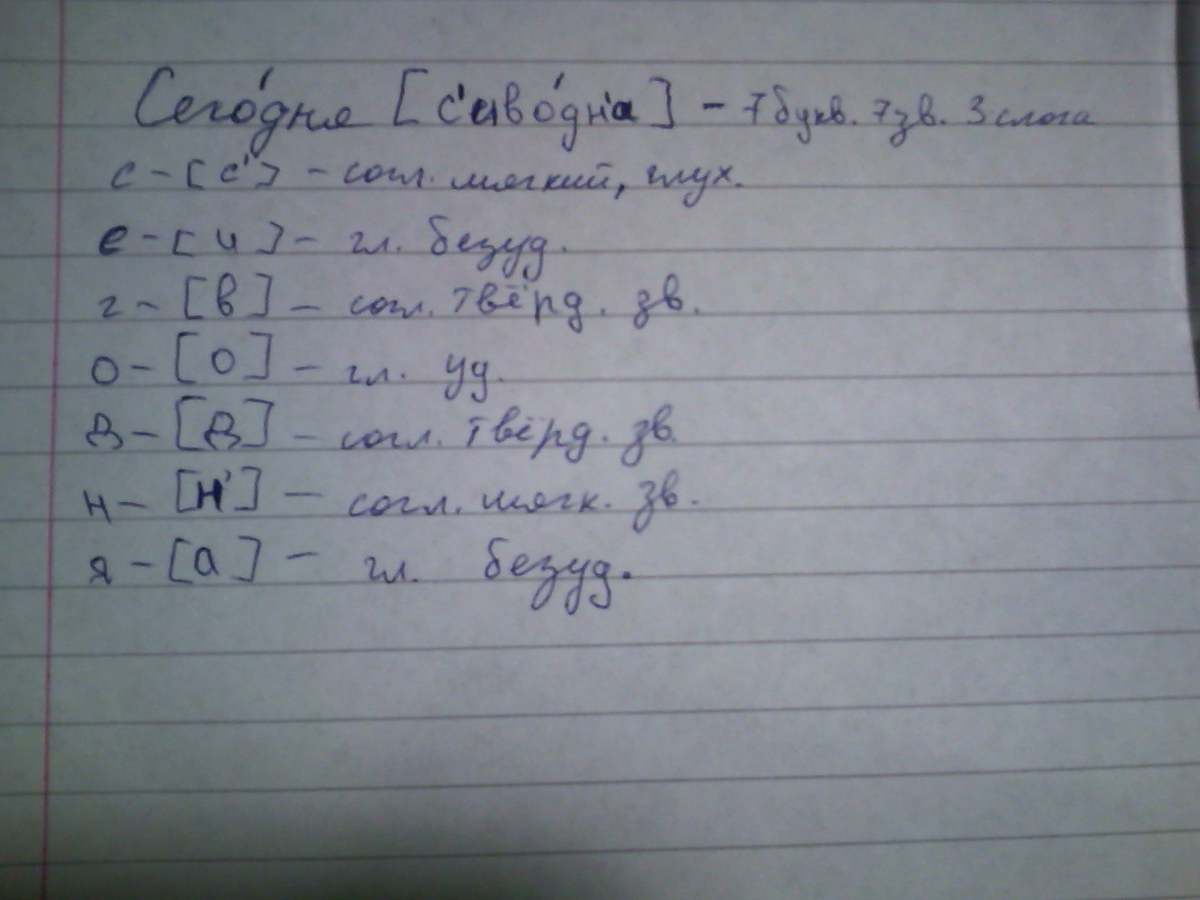 Сего́дня [с'иво́дн'а] – 7 букв. 7 зв. 3 слога
с – [с'] – согл. мягкий, глух.
е – [и] – гл. безуд.
г – [в] – согл. твёрд. зв.
о – [о] – гл. уд.
д – [д] – согл. твёрд. зв.
н – [н'] – согл. мягк. зв.
я – [а] – гл. безуд.